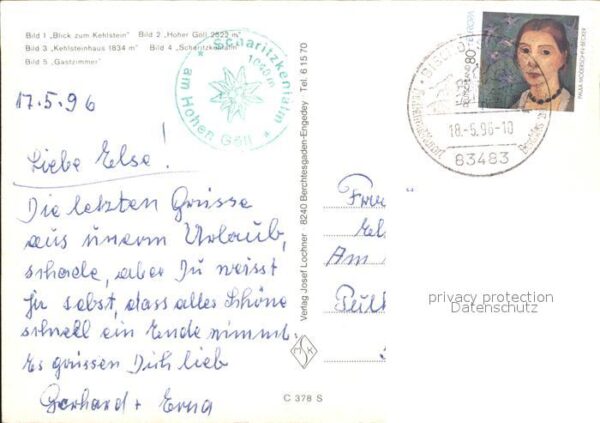 Bild 1 „Blick zum Kehlstein“ Bild 2 „Hoher Göll 2522 m“
Bild 3 „Kehlsteinhaus 1834 m“ Bild 4 „Scharitzkehlalm“
Bild 5 „Gastzimmer“
* Scharitzkehlalm *
1040 m
am Hohen Göll
17.5.96
Liebe Else!
Die letzten Grüsse
aus unserm Urlaub,
schade, aber Du weisst
ja selbst, dass alles Schöne
schnell ein Ende nimmt.
Es grüssen Dich lieb
Gerhard + Erna
Verlag Josef Lochner 8240 Berchtesgaden-Engedey Tel. 61570
C 378 S
80
DEUTSCHLAND
EUROPA
PAULA MODERSOHN-BECKER
18.-5.96-10
83483
Am
privacy protection
Datenschutz